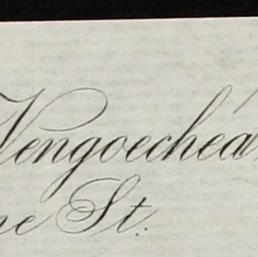 Vengoecheá
ne St.